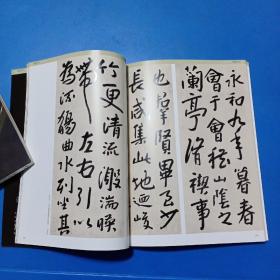 永和九年暮春
會于會稽山陰之
蘭亭脩禊事
也羣賢畢至少
長咸集此地迺峻
竹更清流激湍暎
帶左右引以
為流觴曲水列坐其